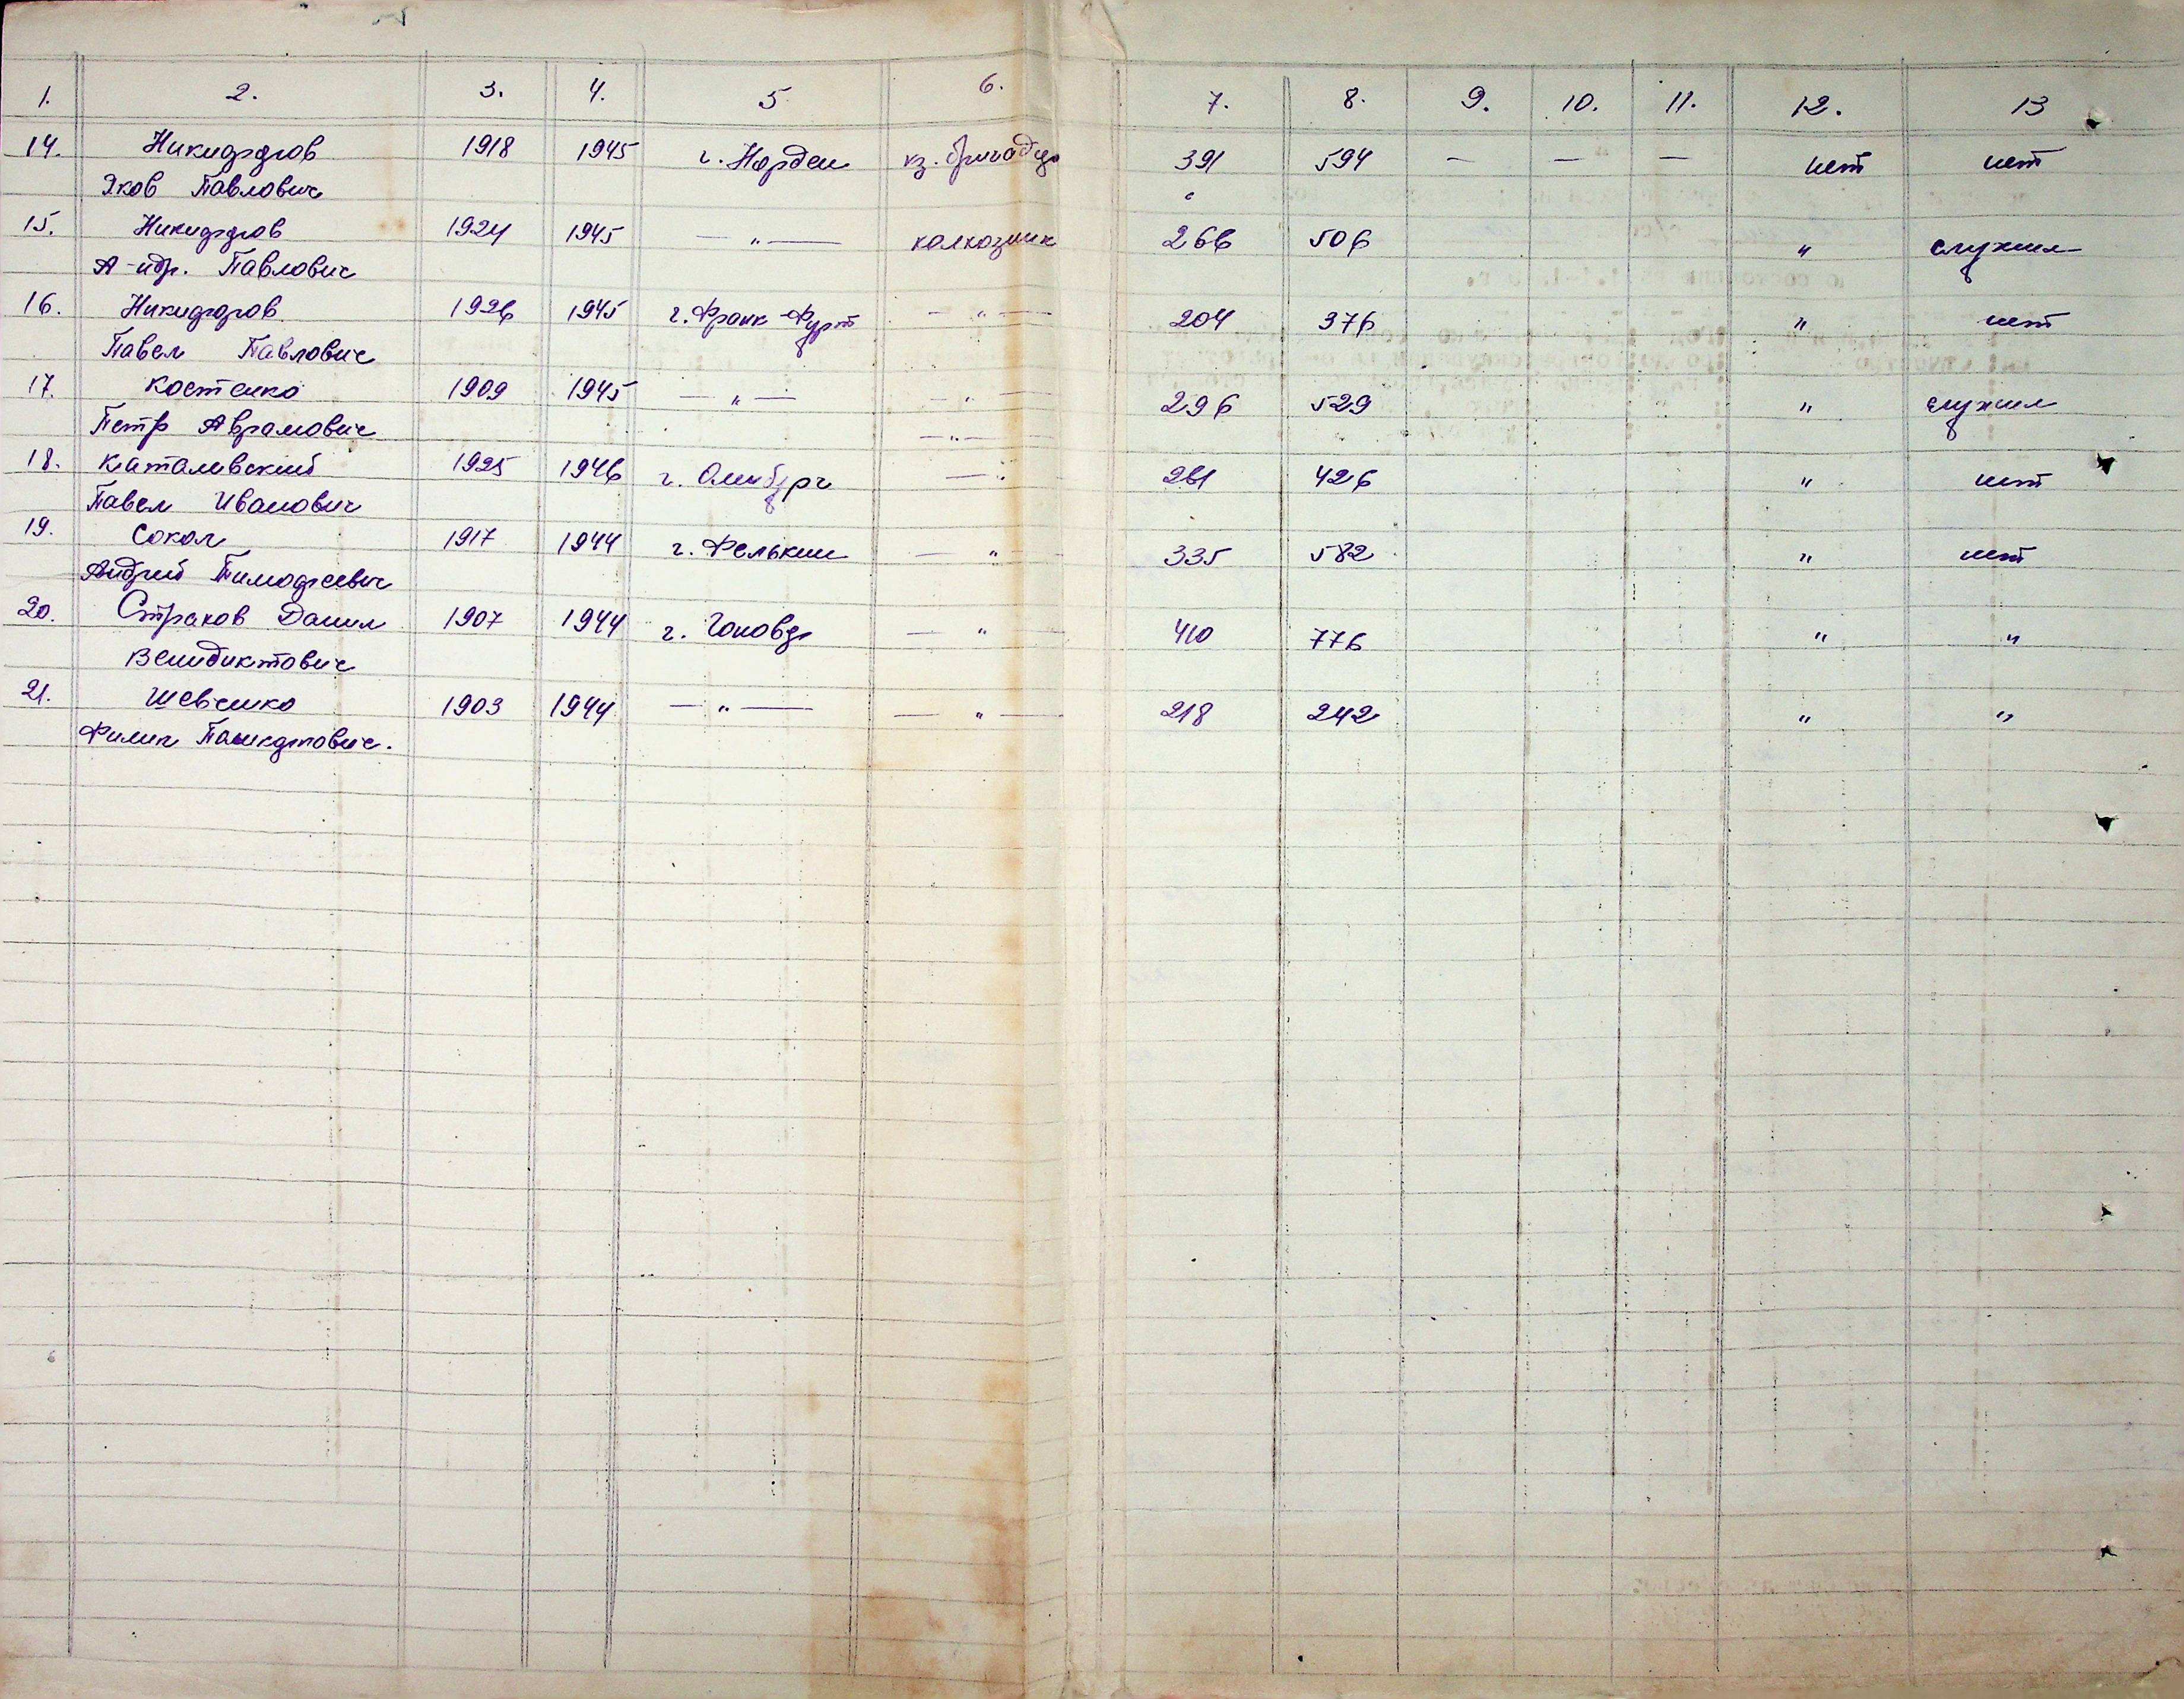 1. 2. 3. 4. 5. 6. 7. 8. 9. 10. 11. 12. 13
14. Никифоров 1918 1945 г. Норден кз. бригадир 391 594 — — — нет нет
Яков Павлович
15. Никифоров 1924 1945 — " — колхозник 266 506 " служил
А-ндр. Павлович
16. Никифоров 1926 1945 г. Франк-Фурт — " — 204 376 " нет
Павел Павлович
17. Костенко 1909 1945 — " — — " — 296 529 " служил
Петр Аврамович — " —
18. 1925 1946 г. — " 261 426 " нет
Павел Иванович
19. Сокол 1917 1944 г. Фелькин — " — 335 582 " нет
Андрей Тимофеевич
20. Страхов Данил 1907 1944 г. — " — 410 776 " "
Венидиктович
21. Шевченко 1903 1944 — " — — " — 218 242 " "
Филип